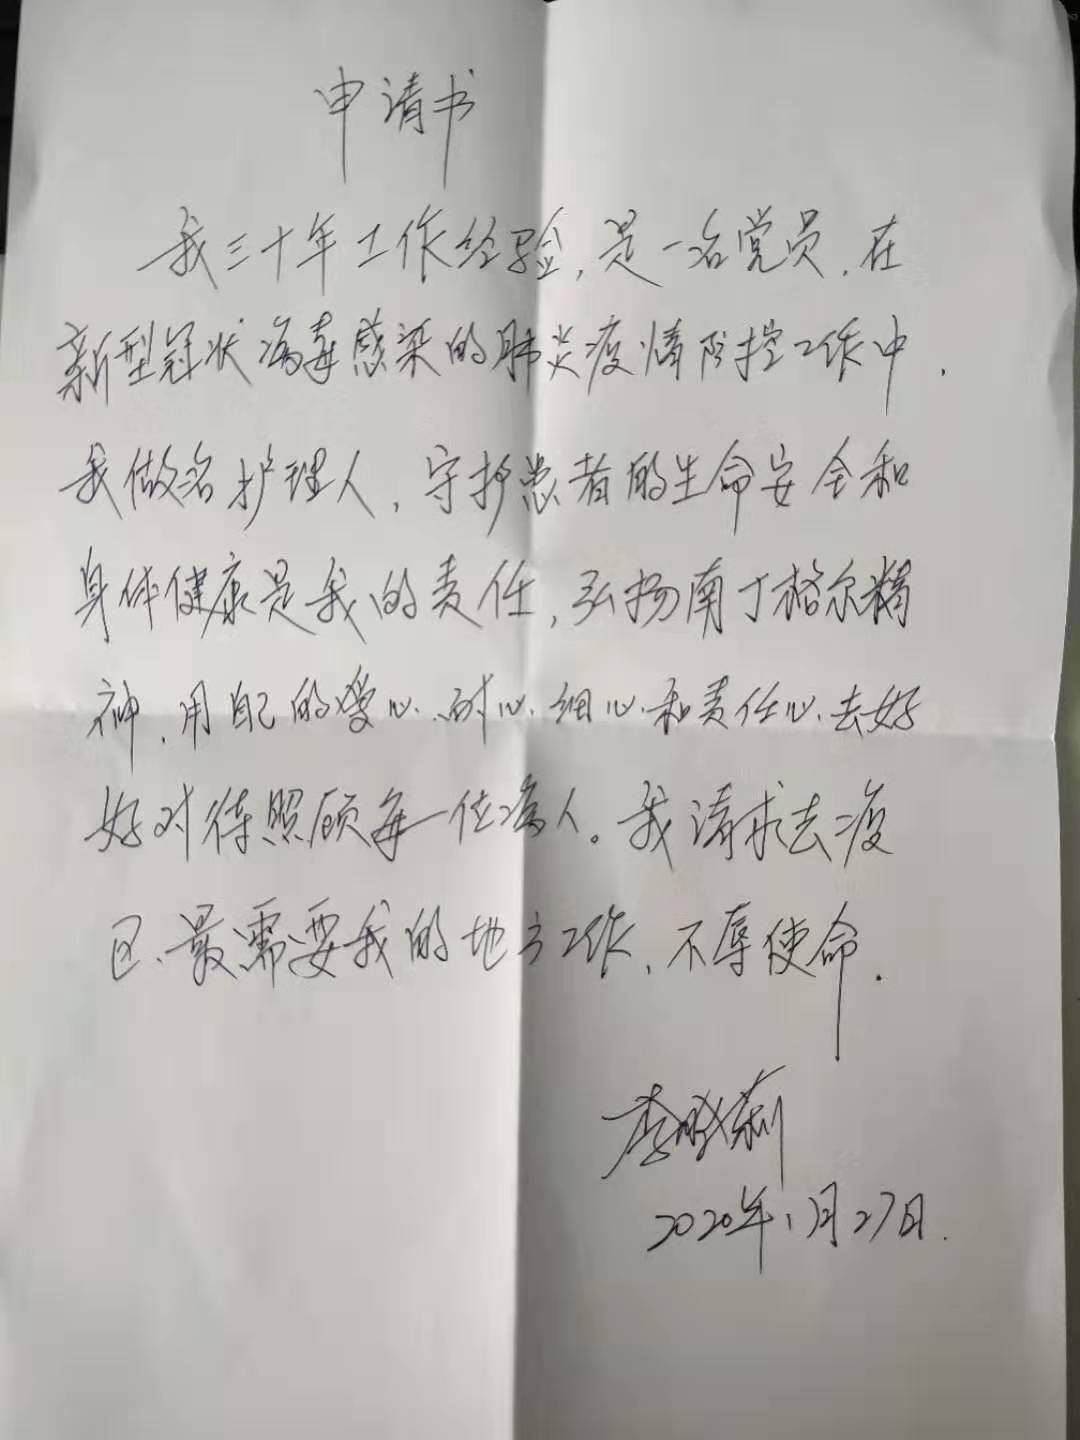 申请书
我三十年工作经验,是一名党员,在
新型冠状病毒感染的肺炎疫情防控工作中,
我做名护理人,守护患者的生命安全和
身体健康是我的责任,弘扬南丁格尔精
神,用自己的爱心、耐心、细心和责任心、去好
好对待照顾每一位病人。我请求去疫
区、最需要我的地方工作,不辱使命.
2020年1月27日.